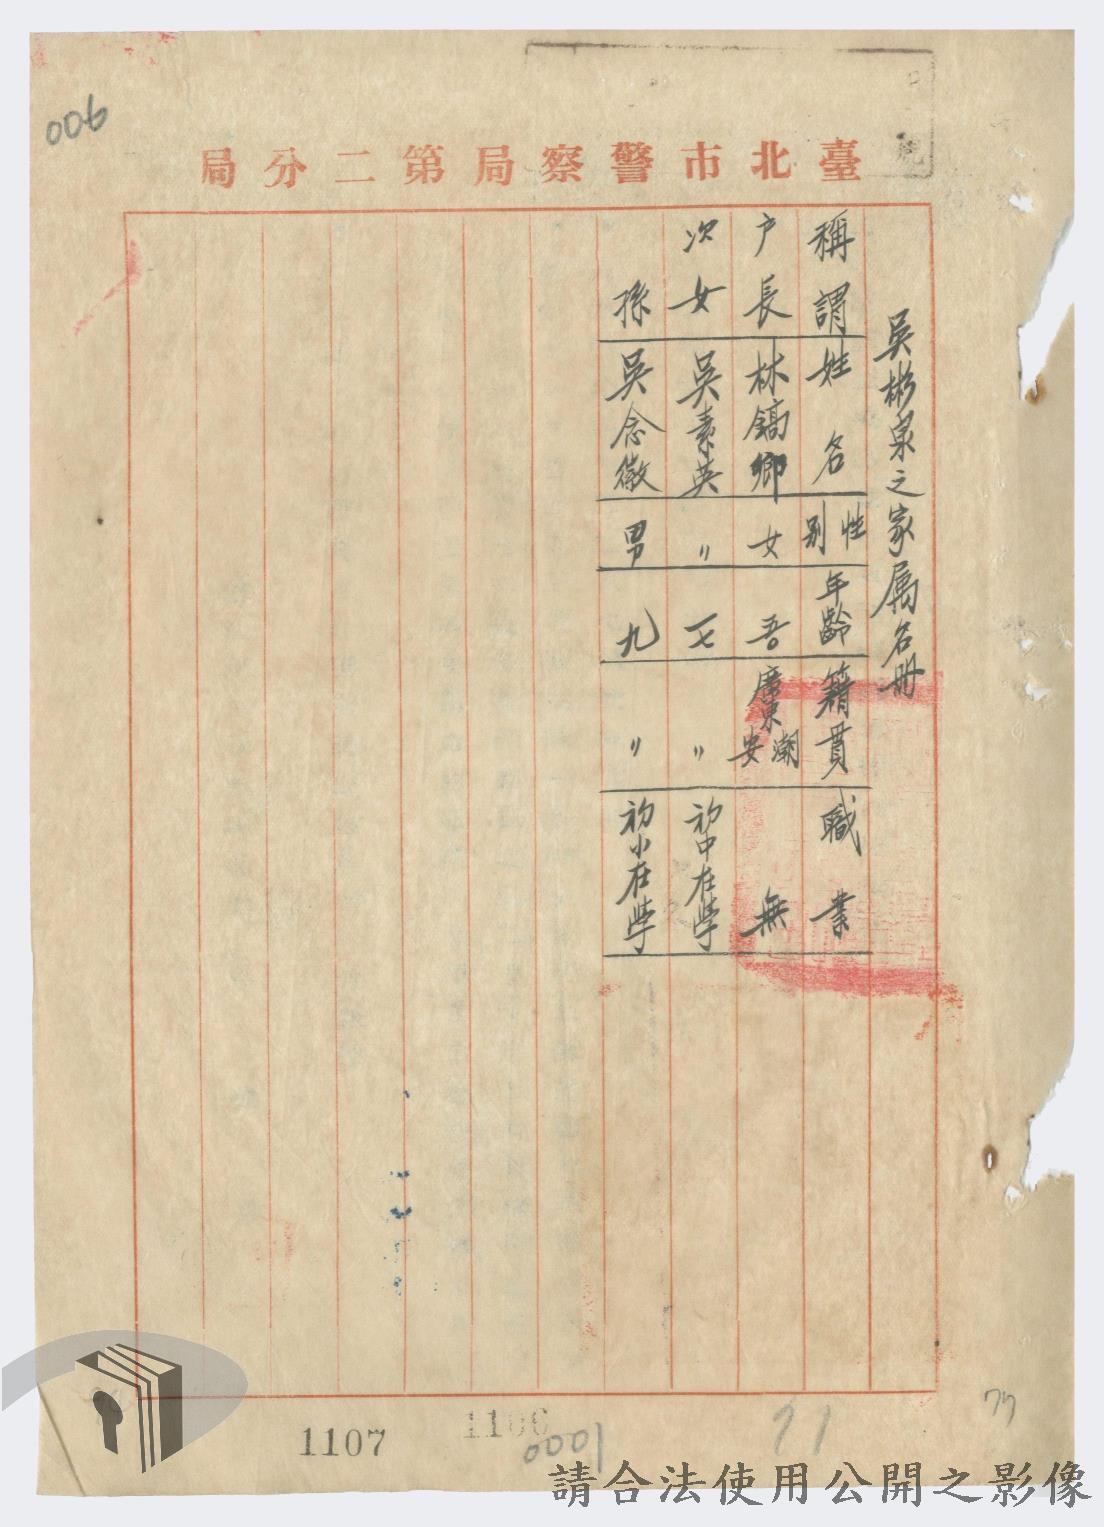 006
臺北市警察局第二分局
吳彬泉之家屬名冊
稱謂 姓名 性別 年齡 籍貫 職業
户長 林鎬鄉 女 廣東潮安 無
次女 吳素英 〃 一七 〃 初中在學
孫 吳念徽 男 九 〃 初小在學
1107
1106
0001
71
77
請合法使用公開之影像